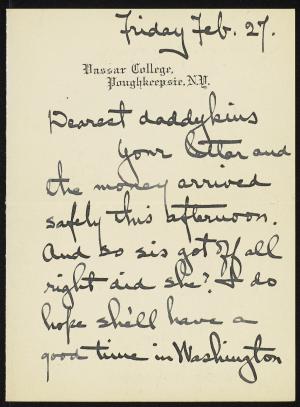 Friday Feb. 27.
Vassar College,
Poughkeepsie, N.Y.
Dearest daddykins
Your letter and
the money arrived
safely this afternoon.
And so sis got off all
right did she? I do
hope she'll have a
good time in Washington